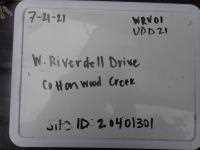 7-21-21 WRV01
UDD21
W. Riverdell Drive
Cottonwood Creek
Site ID: 20401301